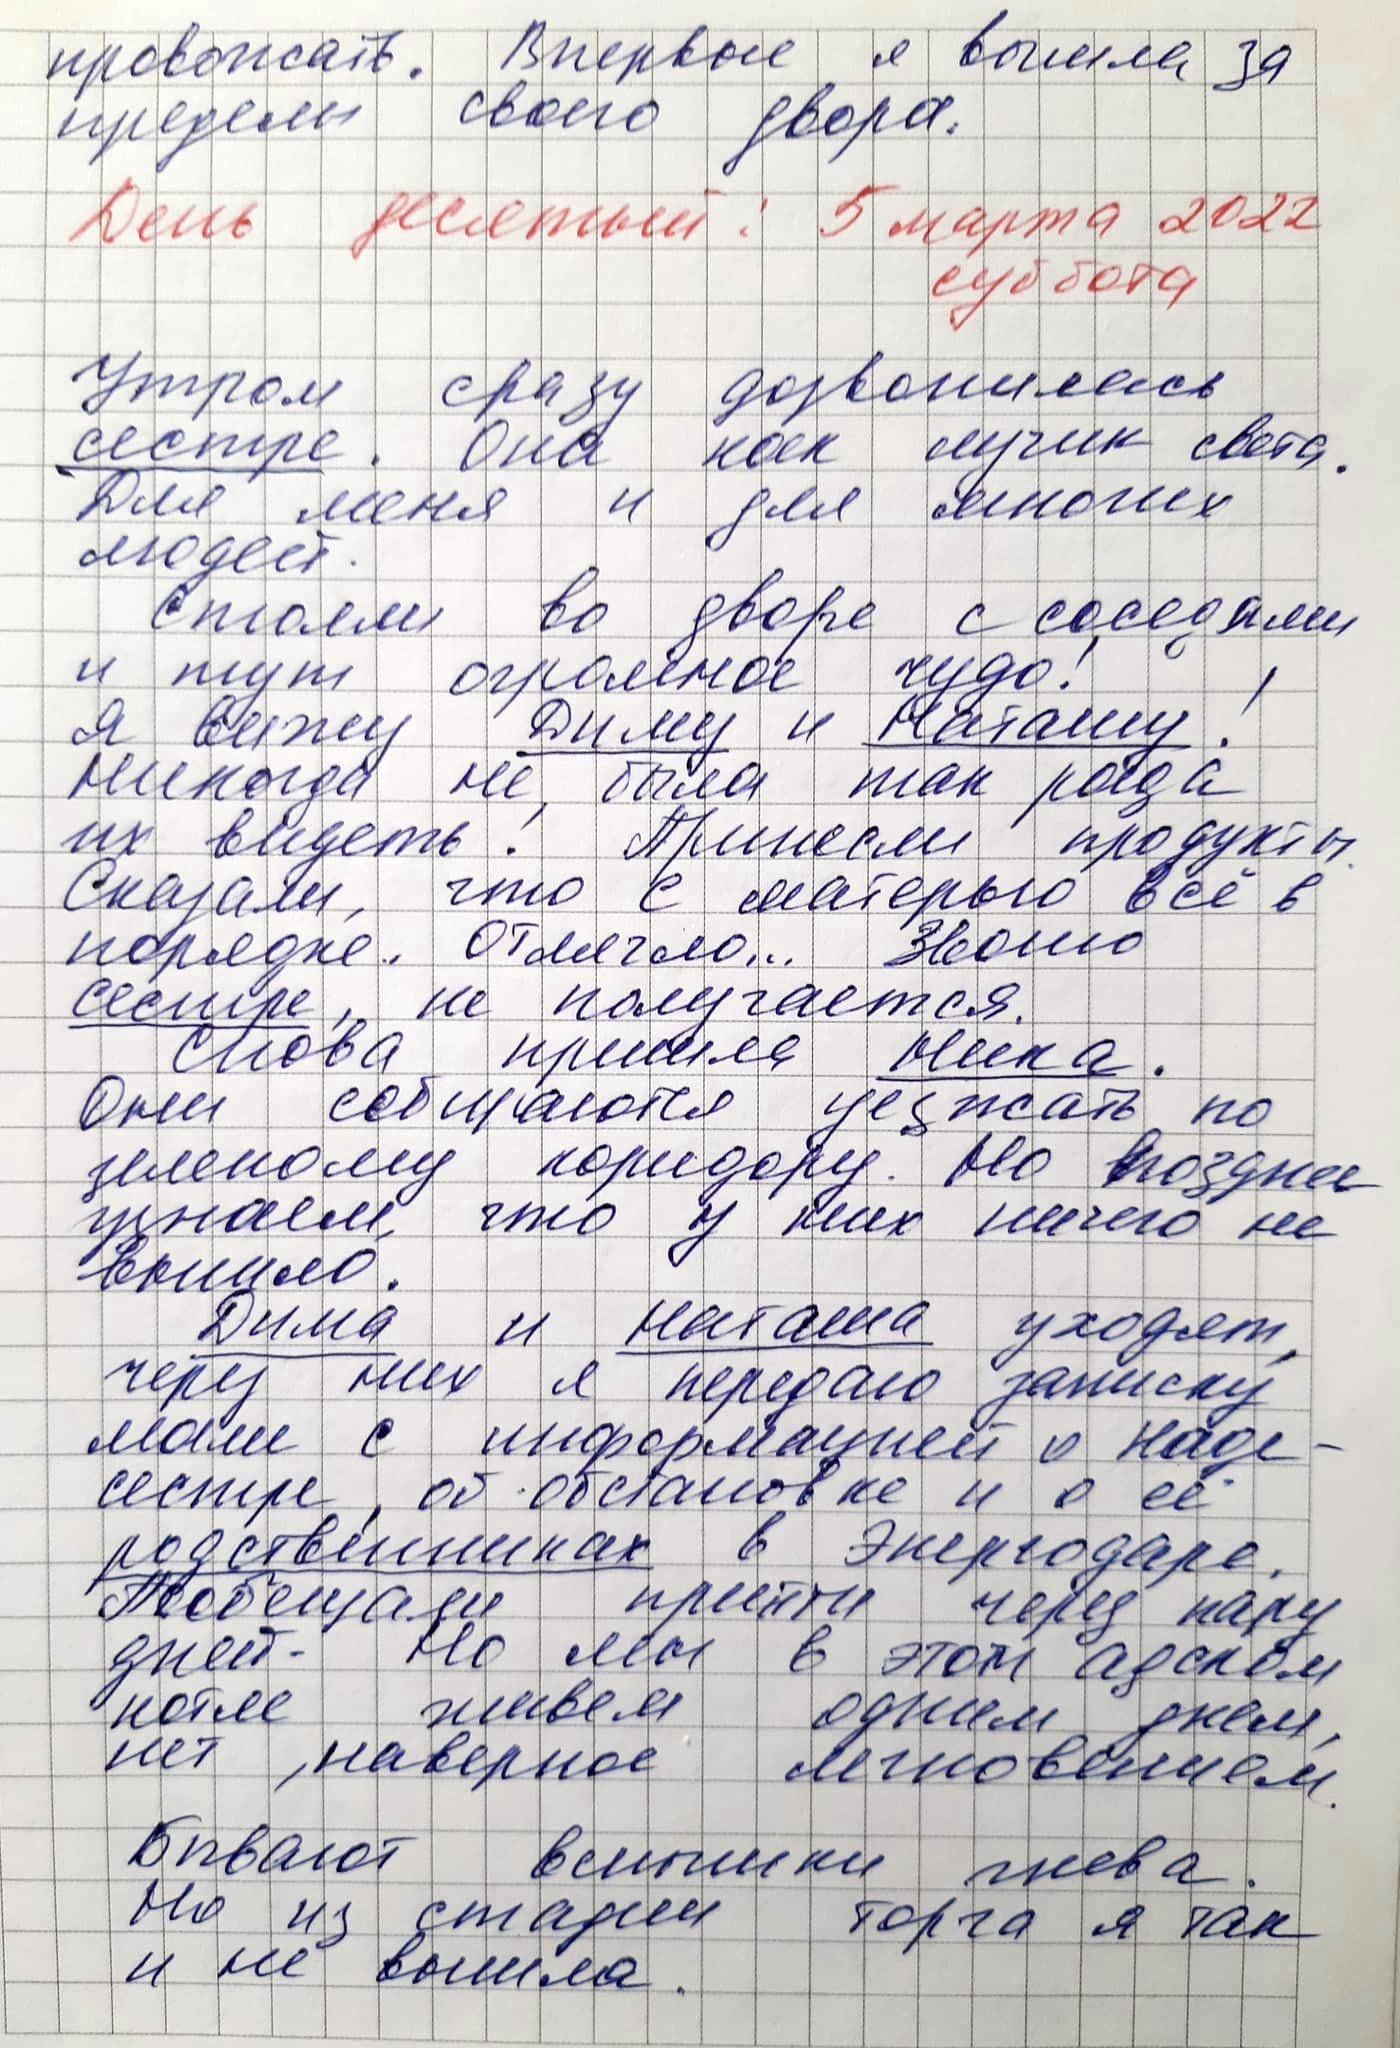 провожать. Впервые я вышла за
пределы своего двора.
День десятый: 5 марта 2022
суббота
Утром сразу дозвонилась
сестре. Она как лучик света.
Для меня и для многих
людей.
Стояли во дворе с соседями
и тут огромное чудо!
Я вижу Диму и Наташу!
Никогда не была так рада
их видеть! Принесли продукты.
Сказали, что с матерью всё в
порядке. Отлягло... Звоню
сестре, не получается.
Снова пришла Ника.
Они собираются уезжать по
зеленому коридору. Но позднее
узнаем, что у них ничего не
вышло.
Дима и Наташа уходят,
через них я передаю записку
маме с информацией о Наде-
сестре, об обстановке и о её
родственниках в Энергодаре.
Пообещали прийти через пару
дней. Но мы в этом адском
котле живем одним днем,
нет, наверное мгновением.
Бывают вспышки гнева.
Но из стадии торга я так
и не вышла.